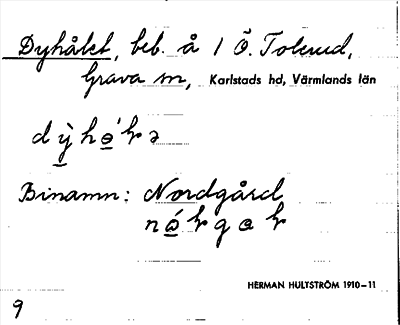 Dyhålet, beb. å 1/ Ö. Tolerud,
Grava sn, Karlstads hd, Värmlands län
Binamn: Nordgård
HERMAN HULTSTRÖM 1910–11
9